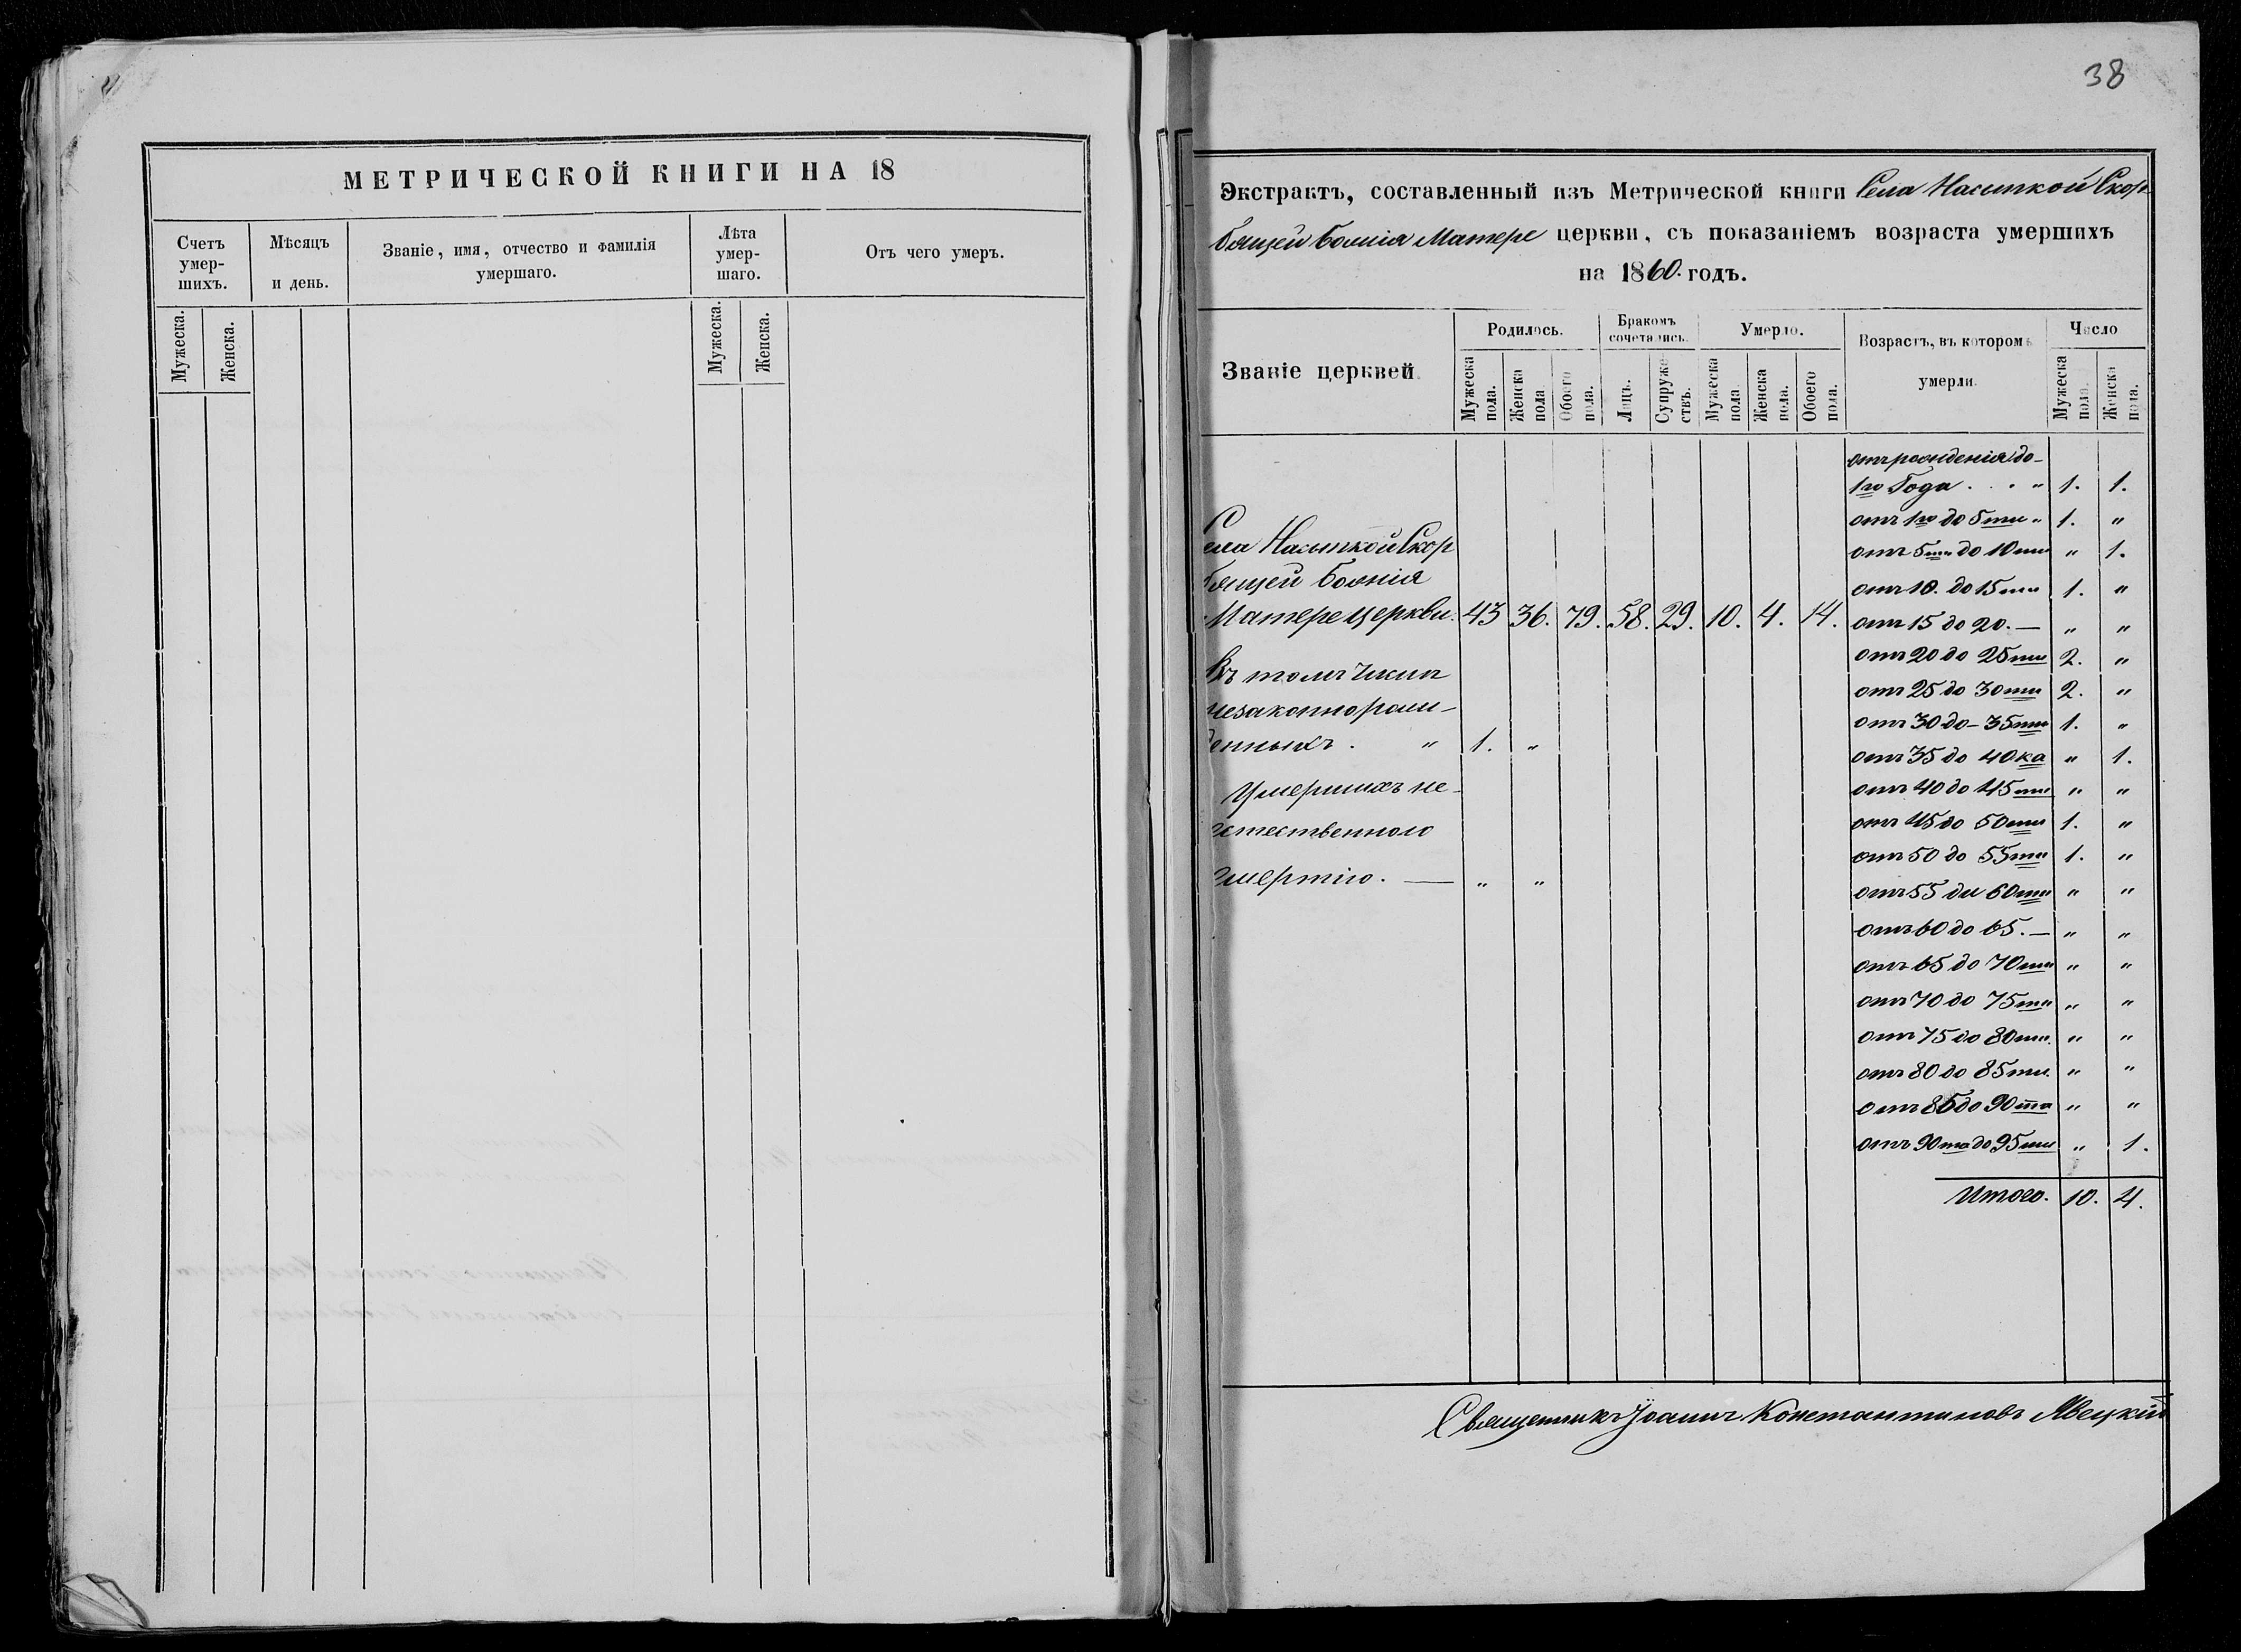 МЕТРИЧЕСКОЙ КНИГИ НА 18
Счетъ умер-шихъ.
Мѣсяцъ и день.
Званіе, имя, отчество и фамилія умершаго.
Лѣта умер-шаго.
Отъ чего умеръ.
Мужеска.
Женска.
Мужеска.
Женска.
38
Экстрактъ, составленный изъ Метрической книги Села Насыпкой Скор
бящей Божія Матере церкви, съ показаніемъ возраста умершихъ
на 1860. годъ.
Званіе церквей.
Родилось.
Бракомъ сочетались.
Умерло.
Возрастъ, въ которомъ умерли.
Число
Мужеска пола.
Женска пола
Обоего пола.
Лицъ.
Супруже ствъ.
Мужеска пола
Женска пола.
Обоего пола.
Мужеска пола.
Женска пола.
Села Насыпкой Скор
бящей Божія
Матере церкви. 43 36. 79. 58. 29. 10. 4. 14.
Въ томъ числѣ
незаконнорож-
денныхъ . " 1. "
Умершихъ не-
естественною
смертію. — " "
отъ рожденія до-
1го Года . . " 1. 1.
отъ 1го до 5ти " 1. "
отъ 5ти до 10ти " 1.
отъ 10. до 15ти 1. "
отъ 15 до 20. — " "
отъ 20 до 25ти 2. "
отъ 25 до 30ти 2. "
отъ 30 до- 35ти 1. "
отъ 35 до 40ка " 1.
отъ 40 до 45ти " "
отъ 45 до 50ти 1. "
отъ 50 до 55ти 1. "
отъ 55 до 60ти " "
отъ 60 до 65. — " "
отъ 65 до 70ти " "
отъ 70 до 75ти " "
отъ 75 до 80ти. " "
отъ 80 до 85ти. " "
отъ 85 до 90та " "
отъ 90та до 95ти " 1.
Итого. 10. 4.
Священникъ Іоаннъ Константиновъ Явецкій